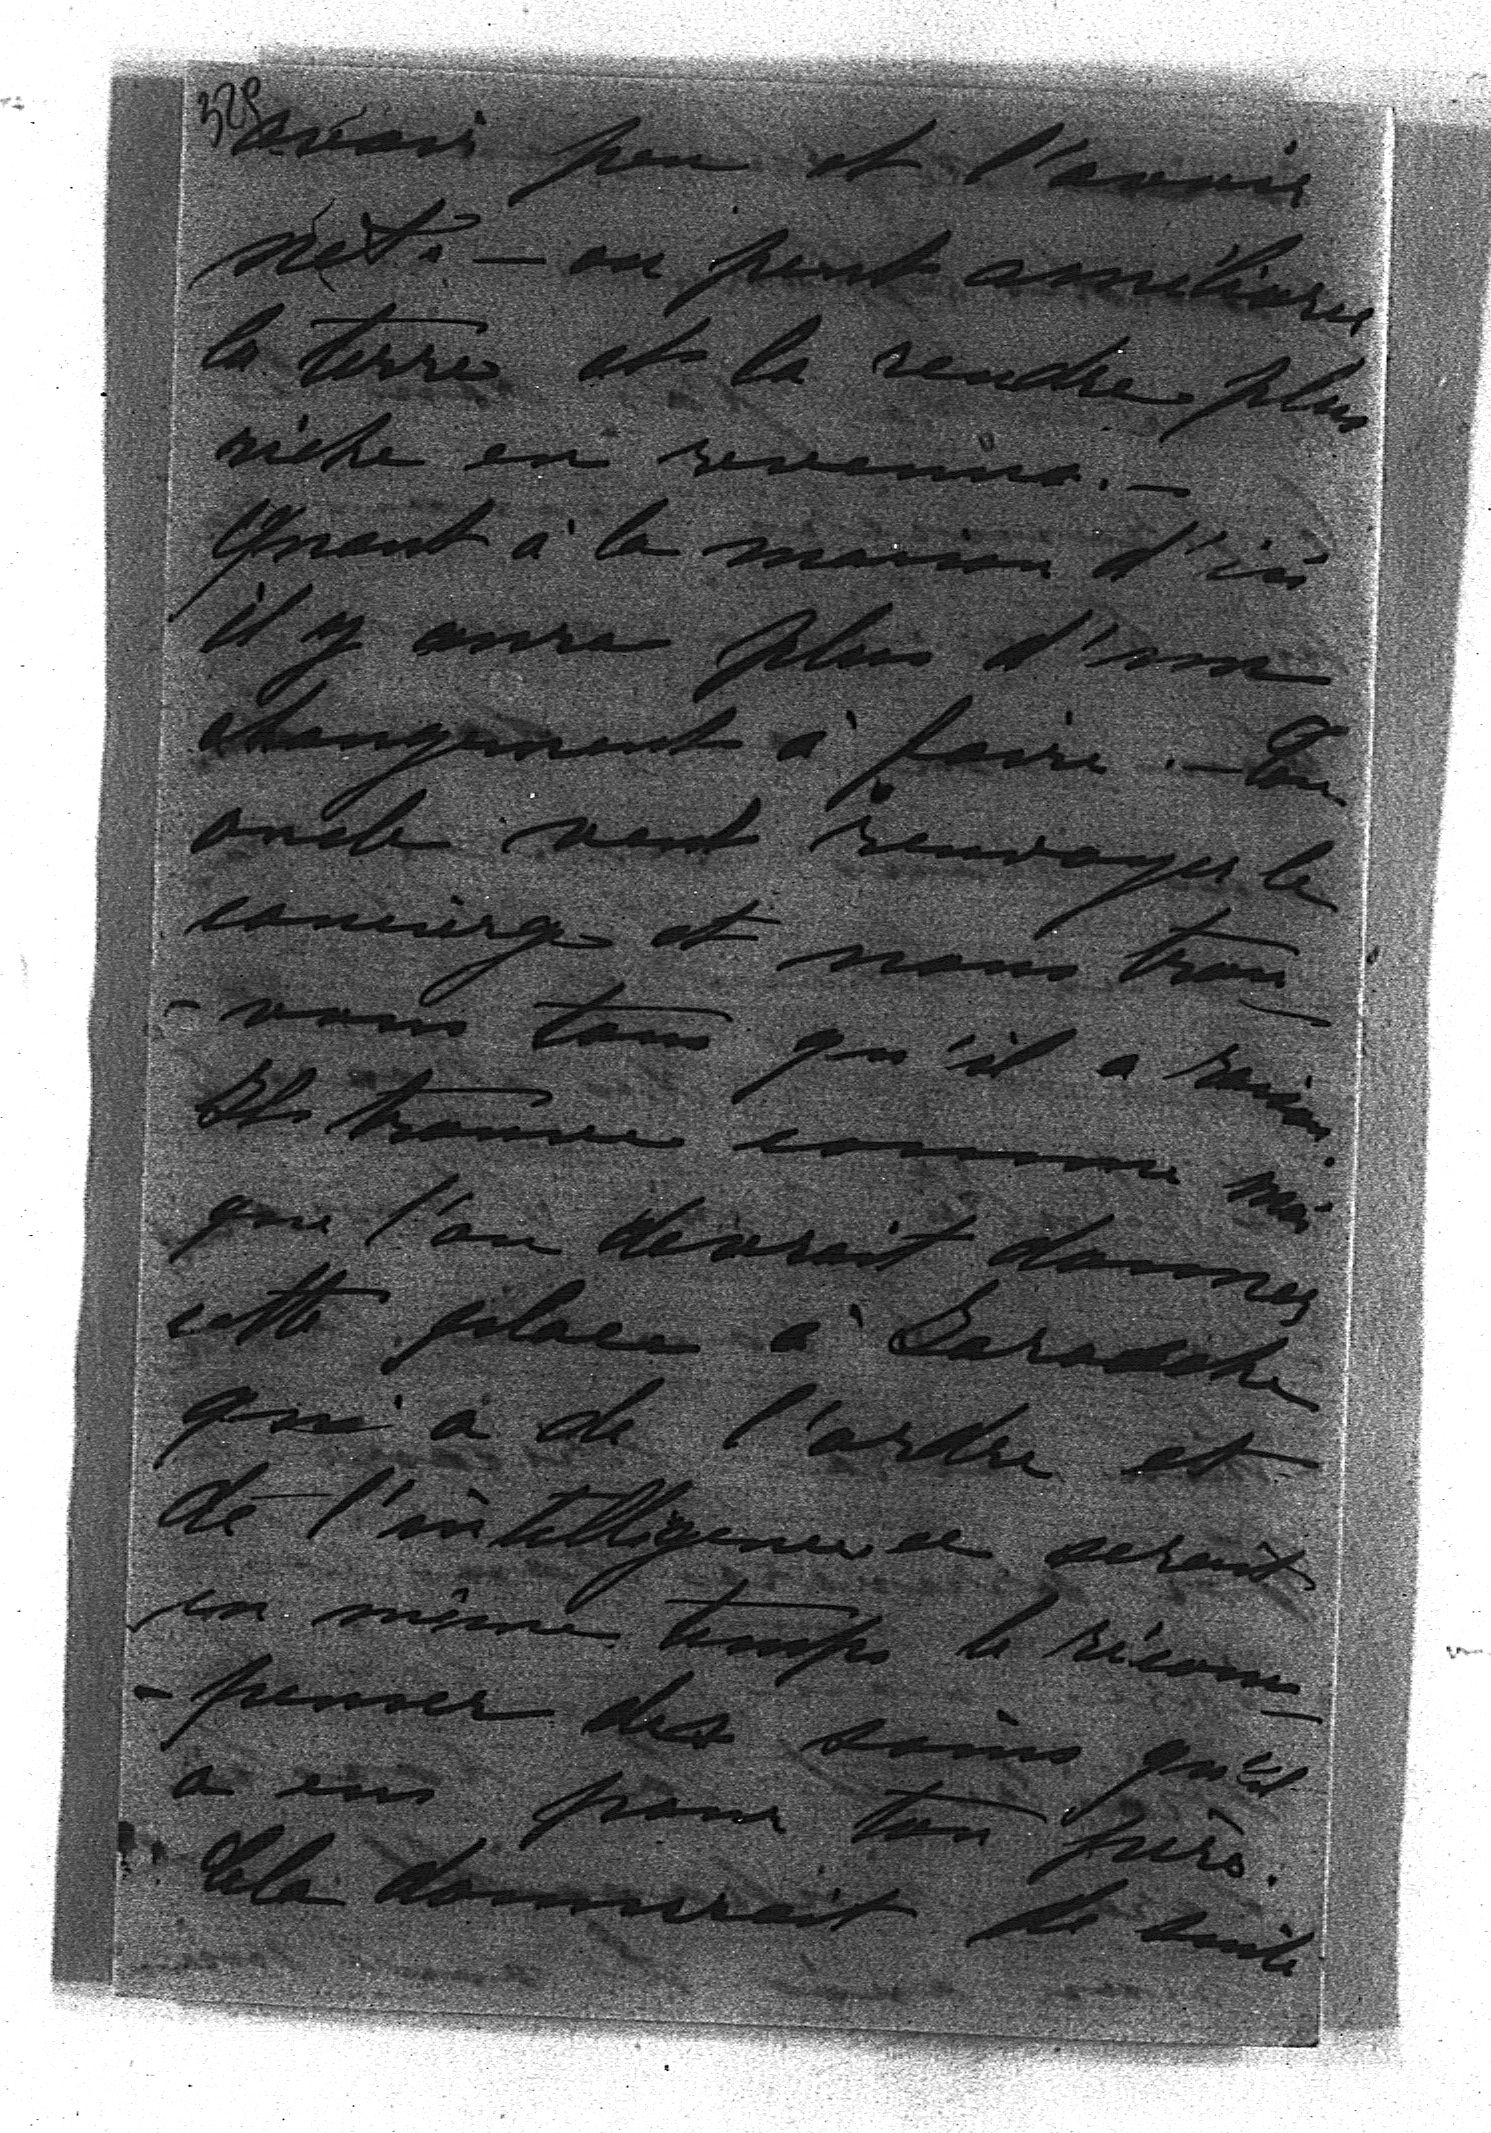 329
avoir peu et l'avoir
net. — on peut améliorer
la terre et la rendre plus
riche en revenus. —
Quant à la maison d'ici
il y aura plus d'un
changement à faire. — Ton
oncle veut renvoyer le
concierge et nous trou-
-vons tous qu'il a raison.
Il trouve comme moi
que l'on devrait donner
cette place à
qui a de l'ordre et
de l'intelligence ce serait
en même temps le récom-
-penser des soins qu'il
a eus pour ton père.
Cela donnerait de suite